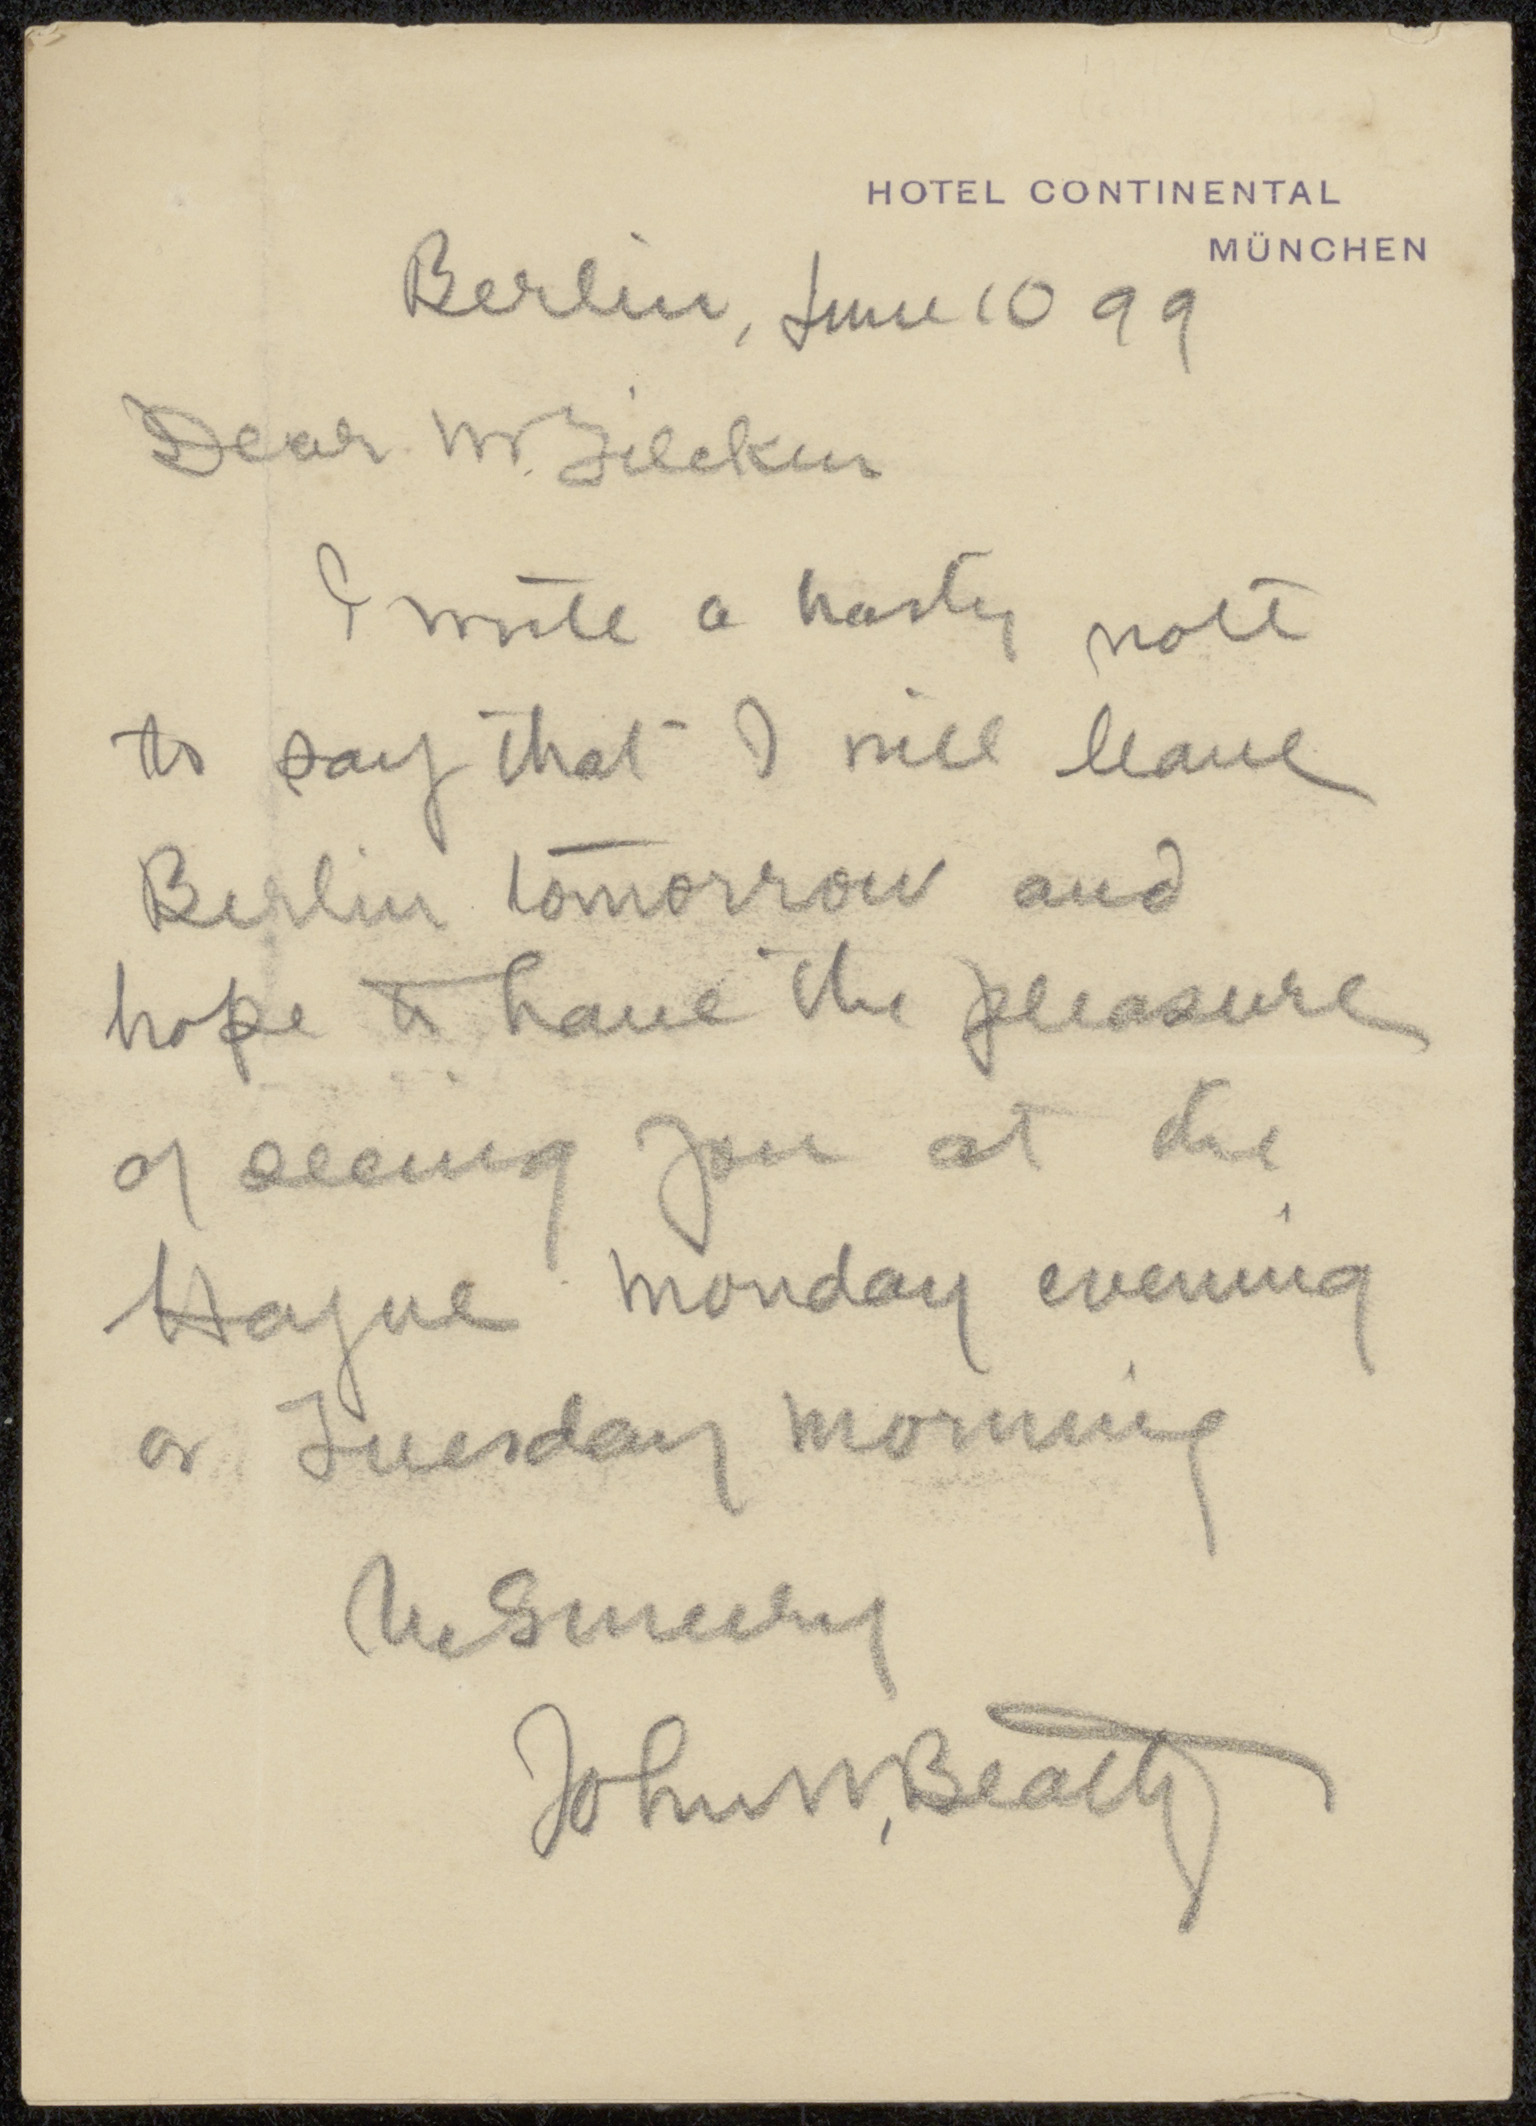 HOTEL CONTINENTAL
MÜNCHEN
Berlin, June 10 99
Dear Mr. Zilcken
I write a hasty note
to say that I will leave
Berlin tomorrow and
hope to have the pleasure
of seeing you at the
Hague Monday evening
or Tuesday morning
Sincerely
John W. Beatty